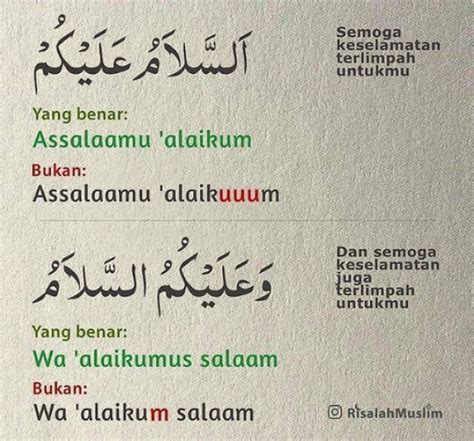 اَلسَّلاَمُ عَلَيْكُمْ
Semoga
keselamatan
terlimpah
untukmu
Yang benar:
Assalaamu 'alaikum
Bukan:
Assalaamu 'alaikuuum
وَعَلَيْكُمُ السَّلاَمُ
Dan semoga
keselamatan
juga
terlimpah
untukmu
Yang benar:
Wa 'alaikumus salaam
Bukan:
Wa 'alaikum salaam
RisalahMuslim